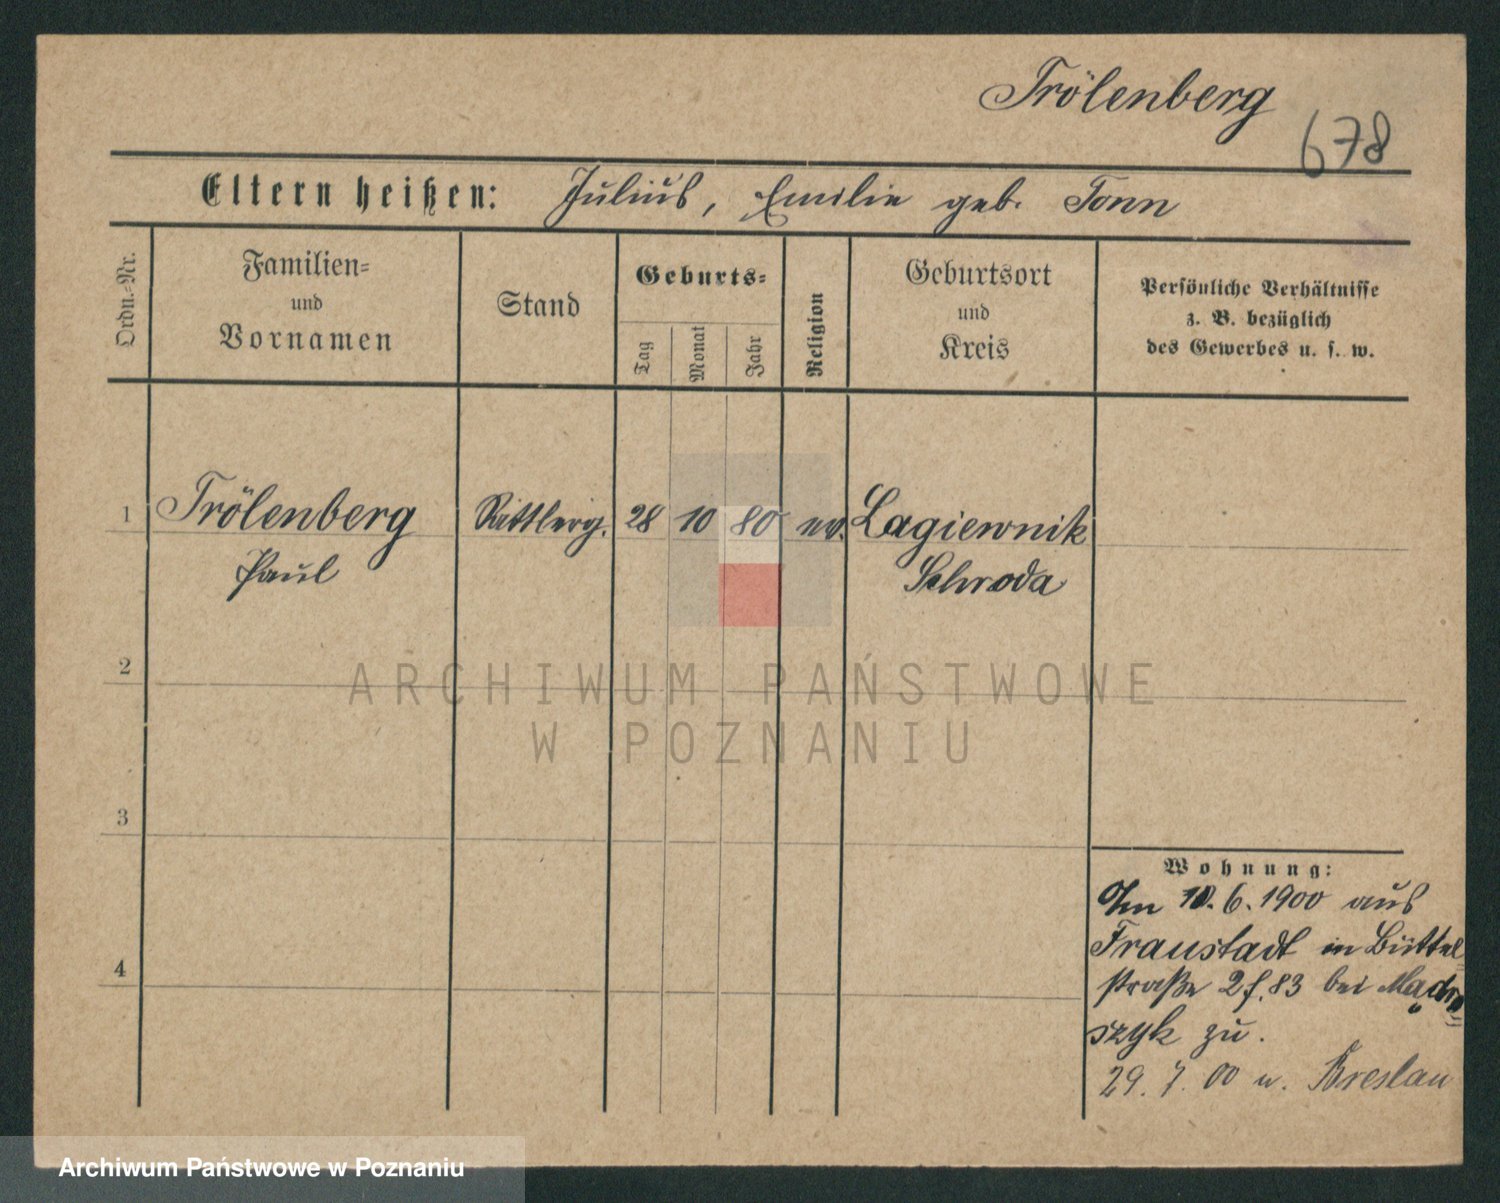 Trölenberg
678
Eltern heißen: Julius, Emilie geb. Tonn
Ordn.-Nr.
Familien-
und
Vornamen
Stand
Geburts-
Tag
Monat
Jahr
Religion
Geburtsort
und
Kreis
Persönliche Verhältnisse
z. B. bezüglich
des Gewerbes u. s. w.
1 Trölenberg 28 10 80 ev. Lagiewnik
Paul Schroda
2
3
4
ARCHIWUM PAŃSTWOWE
W POZNANIU
Wohnung:
Am 10. 6. 1900 aus
Fraustadt in Büttel
straße 83 bei
szyk zu.
29. 7. 00 n. Breslau
Archiwum Państwowe w Poznaniu